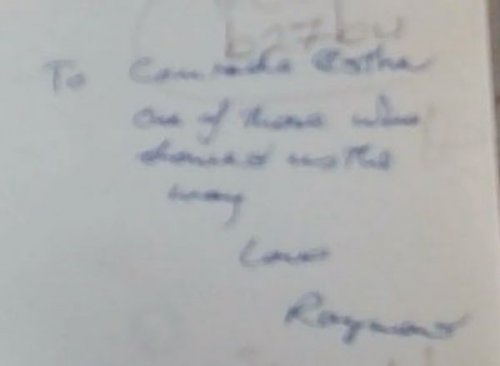 b27b4
To Comrade Esther
One of those who
showed us the
way
Love
Raymond